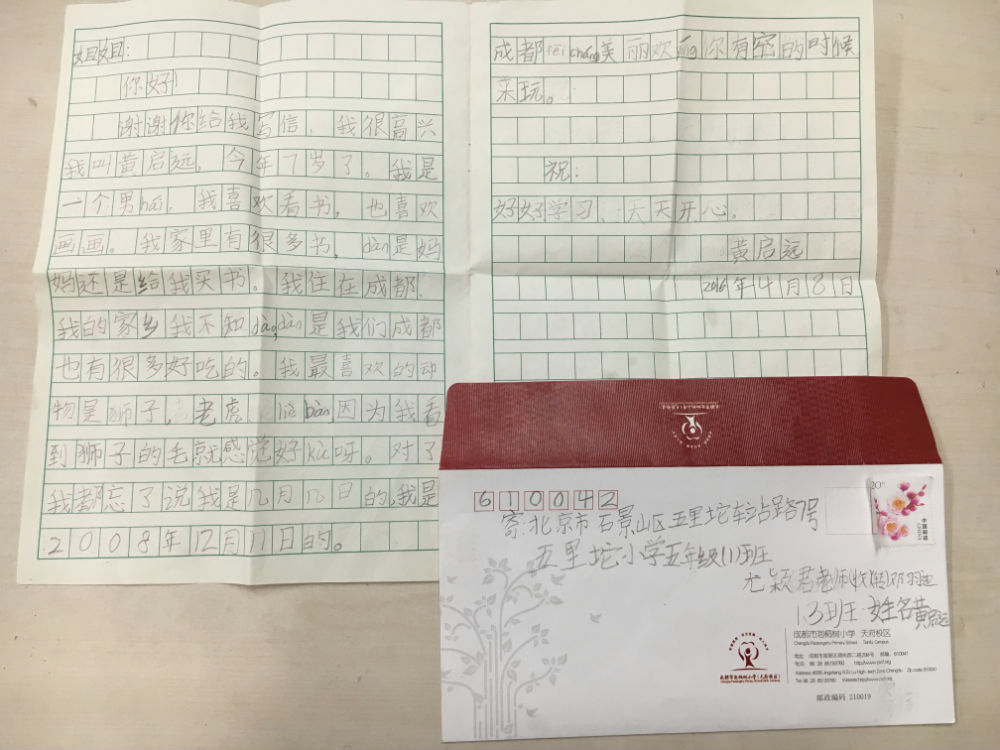 姐姐：
你好！
谢谢你给我写信，我很高兴
我叫黄启远，今年7岁了。我是
一个男hái，我喜欢看书，也喜欢
画画。我家里有很多书，dàn是妈
妈还是给我买书。我住在成都，
我的家乡我不知dào，dàn是我们成都
也有很多好吃的。我最喜欢的动
物是狮子，老虎 liè bào，因为我看
到狮子的毛就感觉好kù呀。对了
我都忘了说我是几月几日的，我是
2008年12月11日的。
成都fēi cháng美丽欢yíng你有空的时候
来玩。
祝：
好好学习、天天开心。
黄启远
2016年4月8日
610042
寄：北京市石景山区五里坨车站路7号
五里坨小学五年级(1)班
尤颖君老师(收)(转)邓
1.3班 姓名黄启远
20
中国邮政
成都市泡桐树小学 天府校区
Chengdu Paotongshu Primary School Tianfu Campus
邮政编码 210019